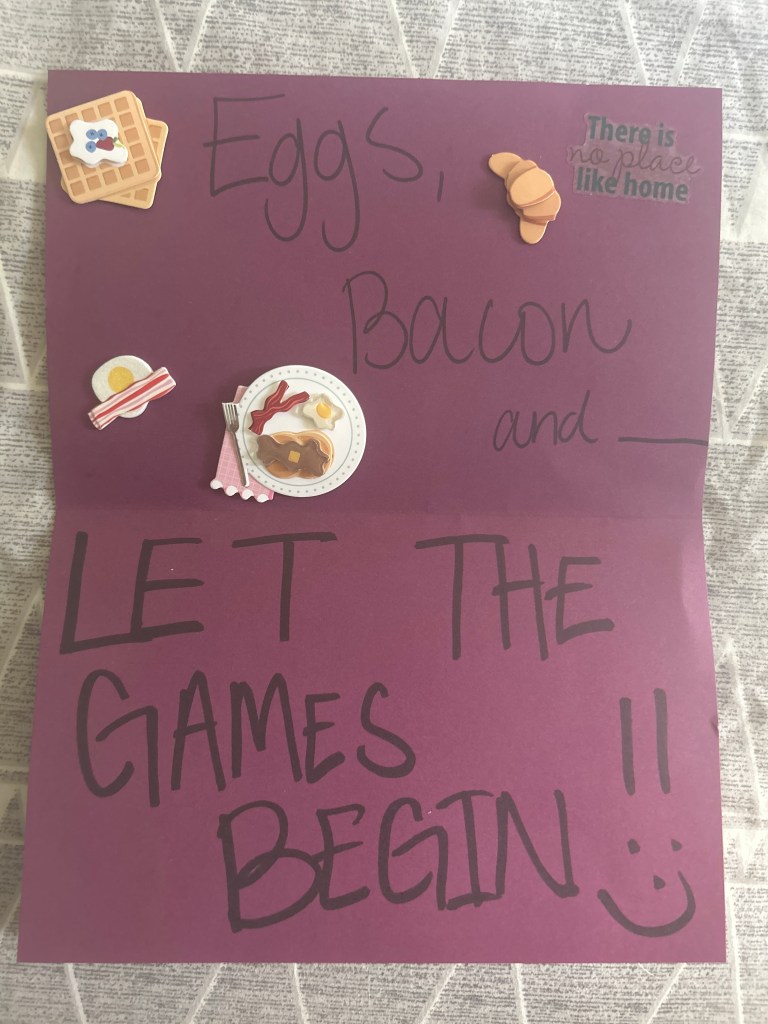 Eggs,
There is
no place
like home
Bacon
and ___
LET THE
GAMES
BEGIN!!